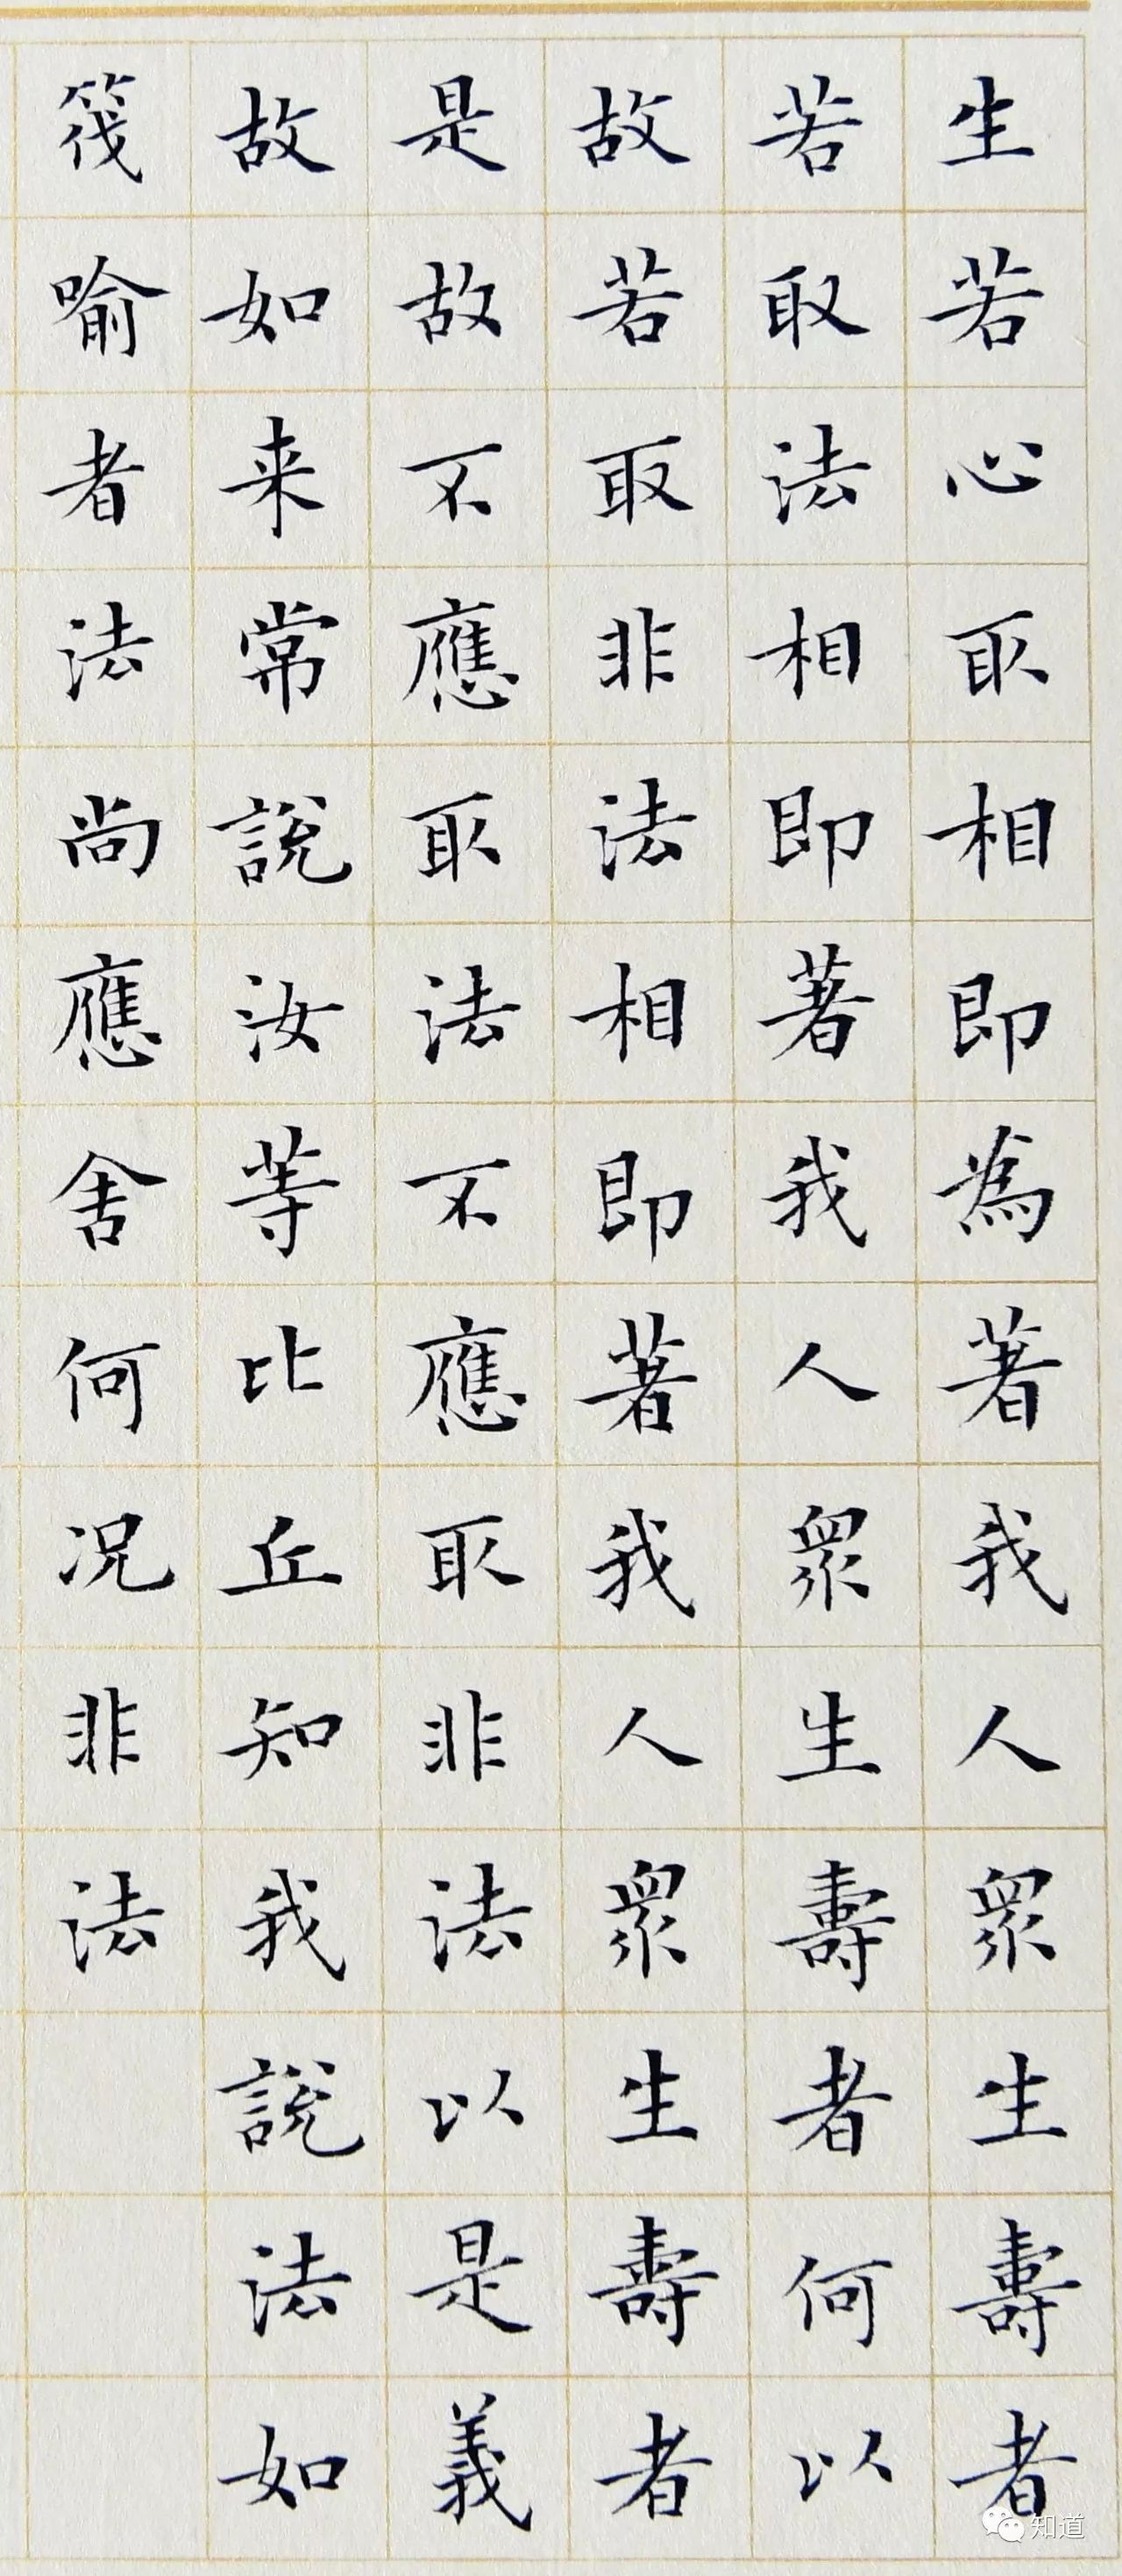 生若心取相即為著我人眾生壽者
若取法相即著我人眾生壽者何以
故若取非法相即著我人眾生壽者
是故不應取法不應取非法以是義
故如来常說汝等比丘知我說法如
筏喻者法尚應舍何况非法
知道